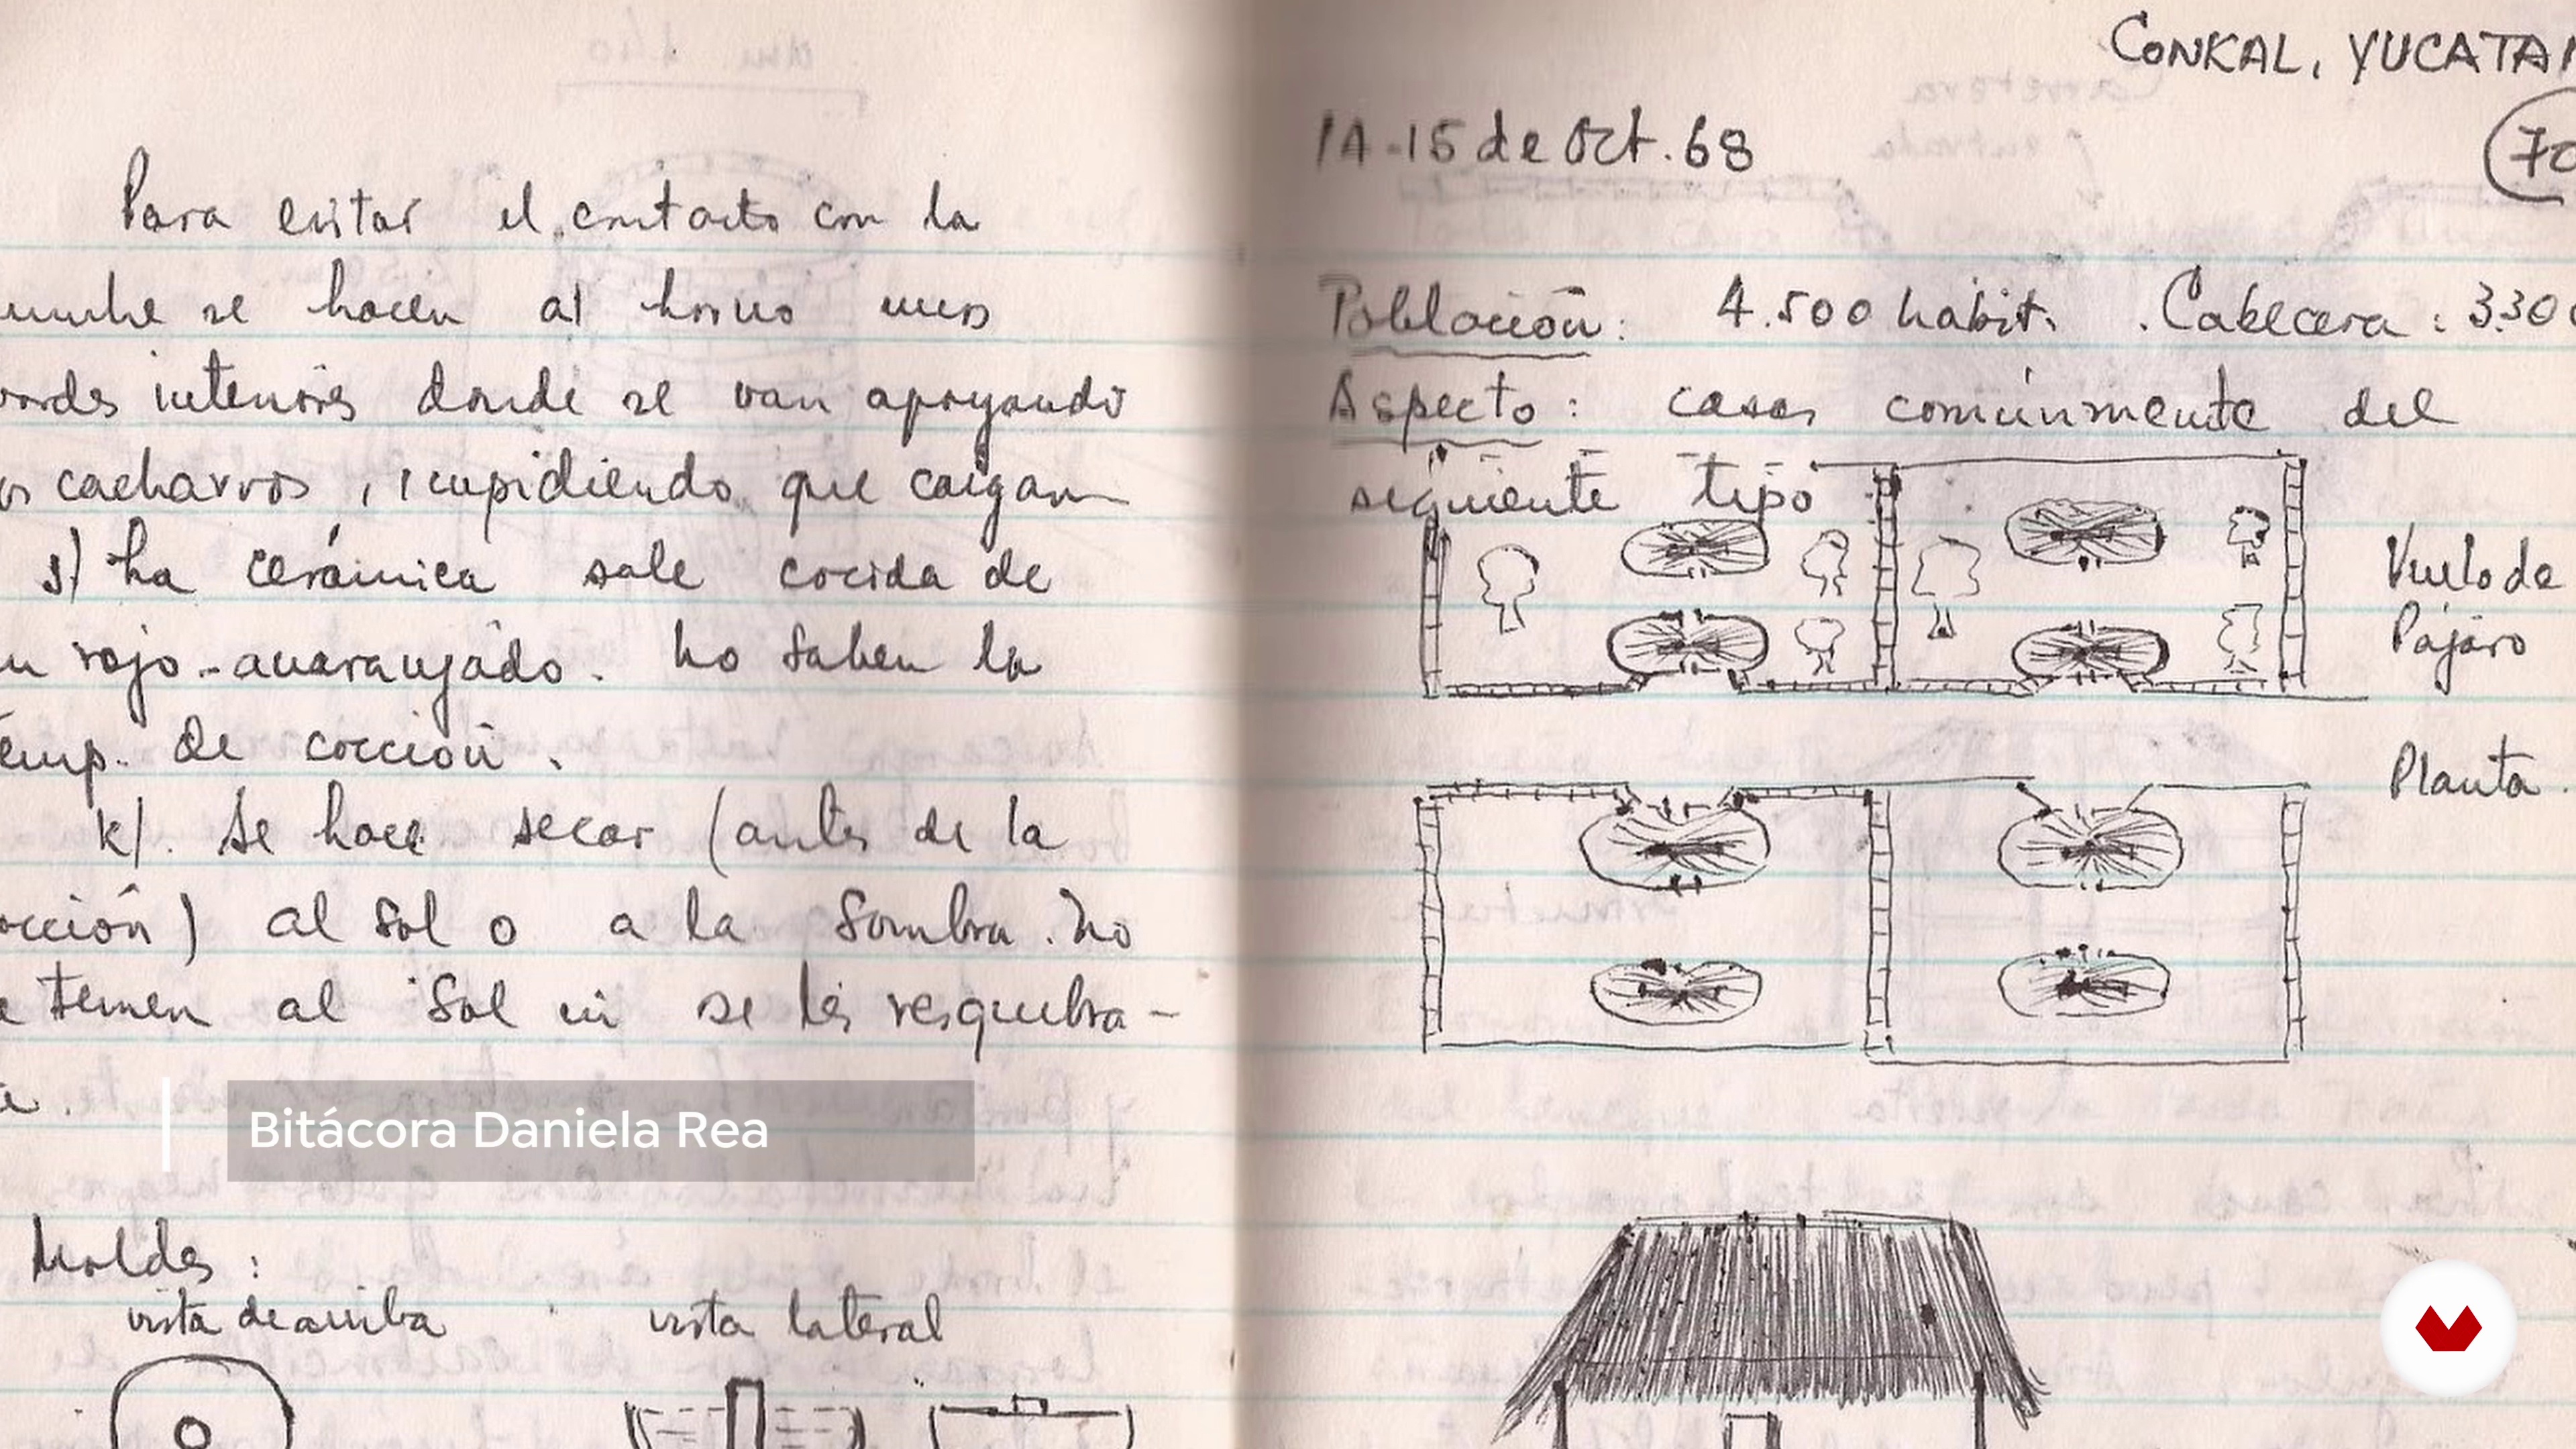 Para evitar el contacto con la
se hacen al horno unos
bordes interiores donde se van apoyando
cacharros, impidiendo que caigan
j) La cerámica sale cocida de
un rojo-anaranjado. No saben la
temp. de cocción.
k). Se hace secar (antes de la
cocción) al sol o a la sombra. No
le temen al sol ni se les resquebra-
Bitácora Daniela Rea
Moldes:
vista de arriba vista lateral
CONKAL, YUCATA
14-15 de Oct. 68
70
Población: 4.500 habit. Cabecera: 3.30
Aspecto: casas comúnmente del
siguiente tipo
Vuelo de
Pájaro
Planta.